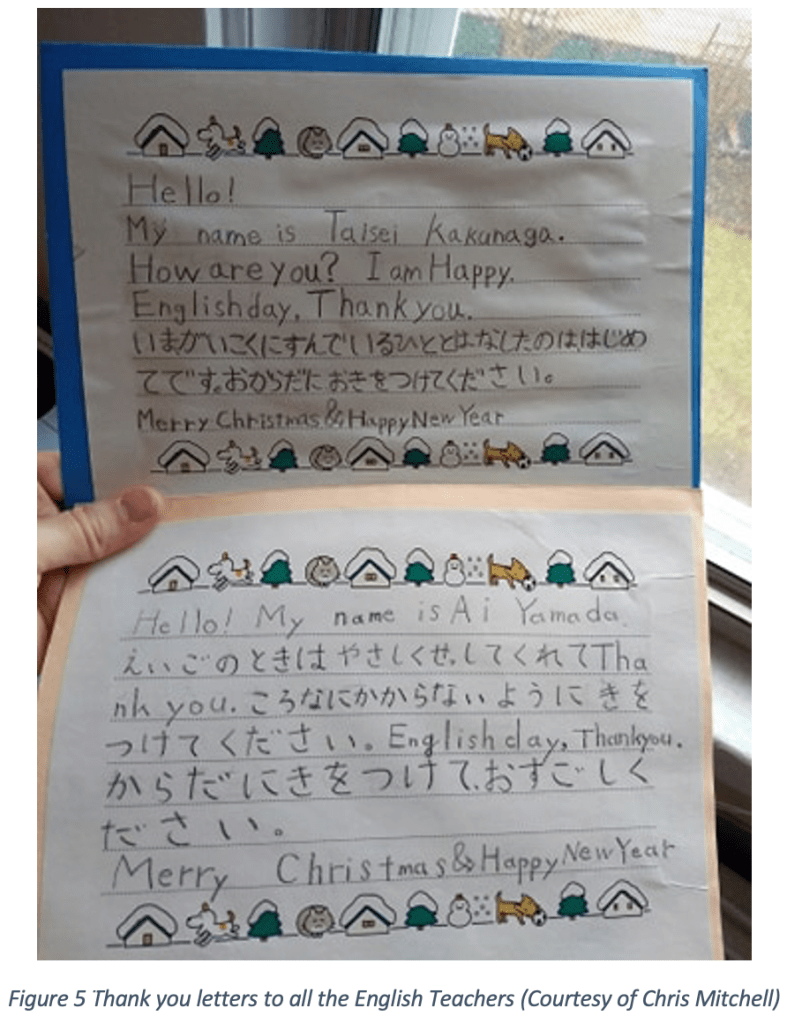 Hello!
My name is Taisei Kakunaga.
How are you? I am Happy.
Englishday, Thank you.
いまがいこくにすんでいるひととはなしたのははじめ
てです。おからだに おきをつけてください。
Merry Christmas & Happy New Year
Hello! My name is Ai Yamada
えいごのときは やさしくせしてくれてTha
nk you. ころなにかからないように きを
つけてください。English day, Thankyou.
からだにきをつけて、おすごしく
ださい。
Merry Christmas & Happy New Year
Figure 5 Thank you letters to all the English Teachers (Courtesy of Chris Mitchell)